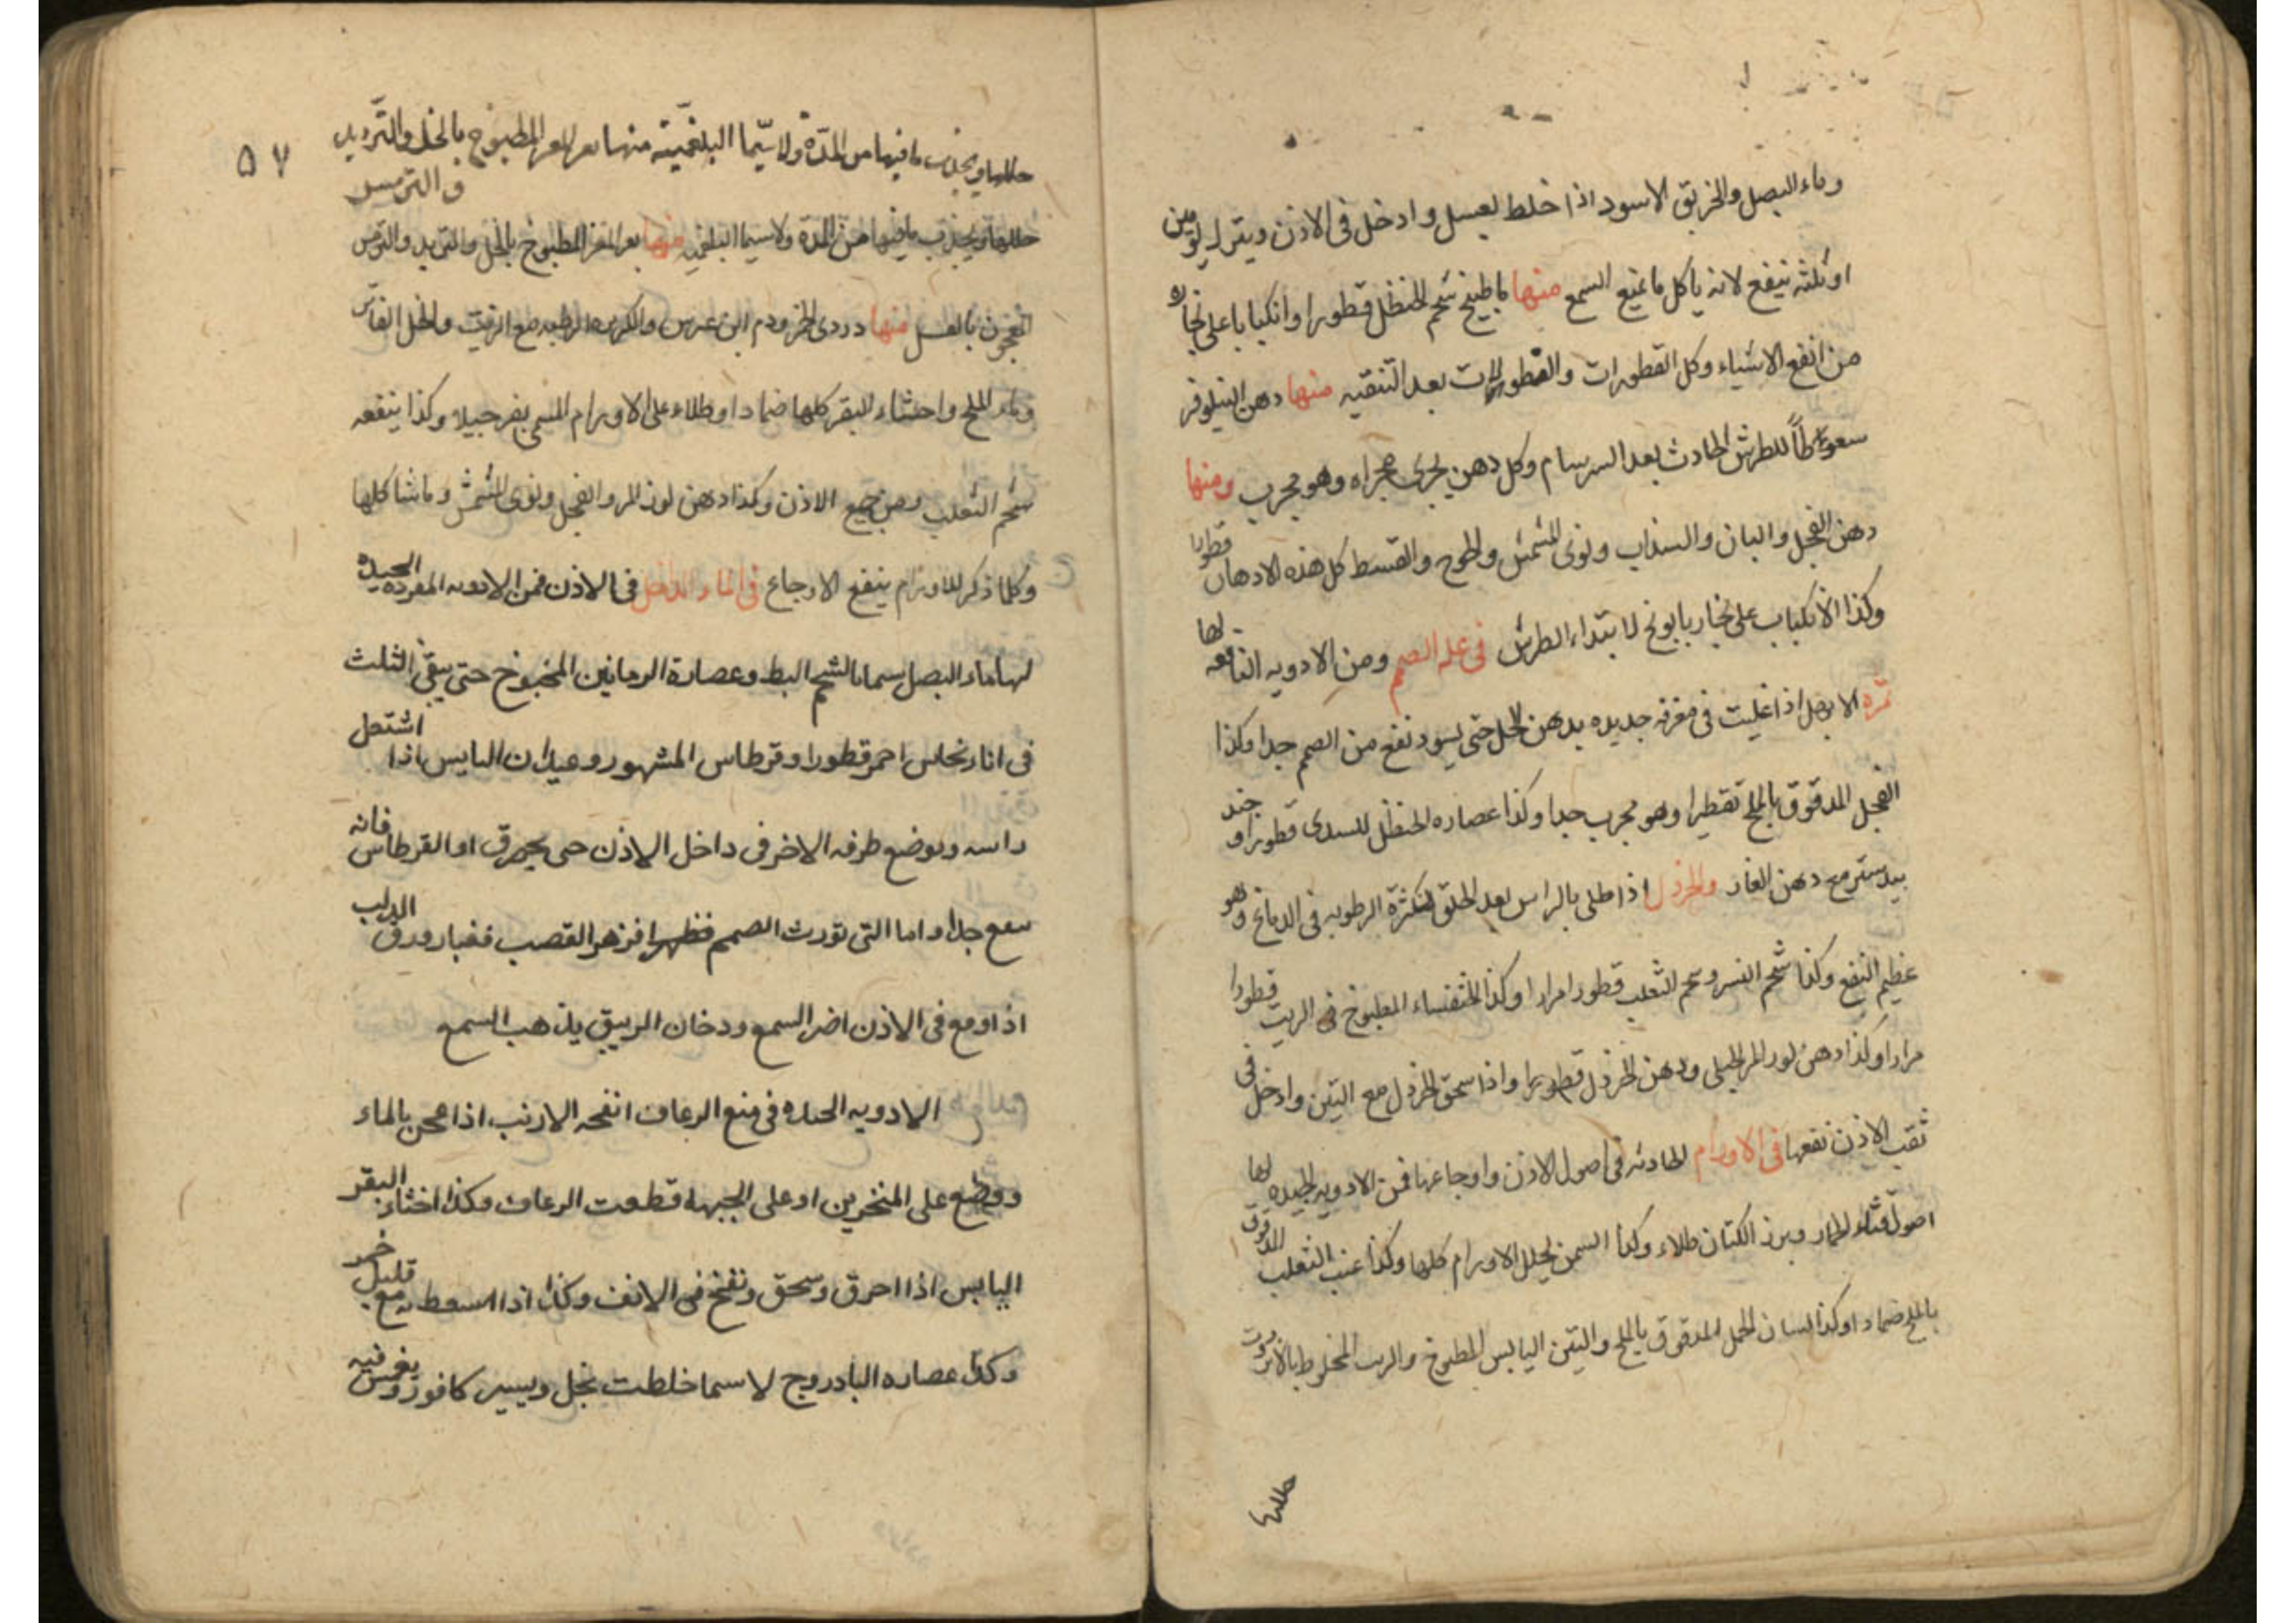 وماء البصل والخربق الاسود اذا خلط بعسل وادخل فى الاذن ويترك يومين
او ثلثه ينفع لانه ياكل ما يمنع السمع منها ماء طبيخ شحم الحنظل قطورا وانكبابا على بخاره
من انفع الاشياء وكل القطورات بعد التنقيه منها دهن النيلوفر
سعوطاً للطرش الحادث بعد السرسام وكل دهن يجرى مجراه وهو مجرب ومنها
دهن الفجل والبان والسنداب ونوى المشمش والقسط كل هذه الادهان قطورا
وكذا الانكباب على بخار بابونج لابتداء الطرش فى علة الصمم ومن الادويه النافعه لها
ثمره الابهل اذا غليت فى مغرفه جديده بدهن الحل حتى يسود نفع من الصمم جدا وكذا
الفجل المدقوق بالملح تقطيرا وهو مجرب جدا وكذا عصاره الحنظل قطورا وجند
بيدستر مع دهن الغار والخردل اذا طلى بالراس بعد الحلق لكثرة الرطوبه فى الدماغ وهو
عظيم النفع وكذا شحم النسر وشحم الثعلب قطورا مرارا وكذا الخنفساء المطبوخ فى الزيت قطورا
مرارا وكذا دهن لوز المر الجبلى ودهن الخردل قطورا واذا سحق الخردل مع التين وادخل فى
ثقب الاذن نفعها فى الاورام الحادثه فى اصول الاذن واوجاعها فمن الادويه الجيده لها
اصول قثاء الحمار وبزر الكتان طلاء وكذا السمن يحلل الاورام كلها وكذا عنب الثعلب المدقوق
بالملح ضمادا وكذا لسان الحمل المدقوق بالملح والتين اليابس المطبوخ والزيت المخلوط
۵۷
ويجذب ما فيها من المدّة ولا سيّما البلغميّة منها بعر المعز المطبوخ بالخل والتربد
والترمس
ويجذب ما فيها من المدة ولا سيما البلغميه منها بعر المعز المطبوخ بالخل والتربد والترمس
المعجون بالعسل منها دردى الخمر ودم ابن عرس مع الزيت والخل
وماء الملح واخثاء البقر كلها ضمادا وطلاء على الاورام وكذا ينفعه
شحم الثعلب وكذا دهن لوز المر والفجل ونوى المشمش وما شاكلها
وكلما ذكر للاورام ينفع الاوجاع فى الماء الداخل فى الاذن فمن الادويه المفرده الجيده
لها ماء البصل سيما بالشحم البط وعصارة الرمانين المطبوخ حتى يبقى الثلث
فى اناء نحاس احمر قطورا وقرطاس المشهور وعيدان اليابس اذا اشتعل
راسه ويوضع طرفه الاخر فى داخل الاذن حتى يحرق او القرطاس فانه
ينفع جدا واما التى تورث الصمم فزهر القصب فغبار ورق الدلب
اذا وقع فى الاذن اضر السمع ودخان الزيبق يذهب السمع
الادويه الجيده فى منع الرعاف انفحه الارنب اذا عجن بالماء
ووضع على المنخرين او على الجبهه قطعت الرعاف وكذا اخثاء البقر
اليابس اذا احرق وسحق ونفخ فى الانف وكذا اذا استعط به مع قليل خمر
وكذا عصاره البادروج لا سيما خلطت بخل ويسير كافور